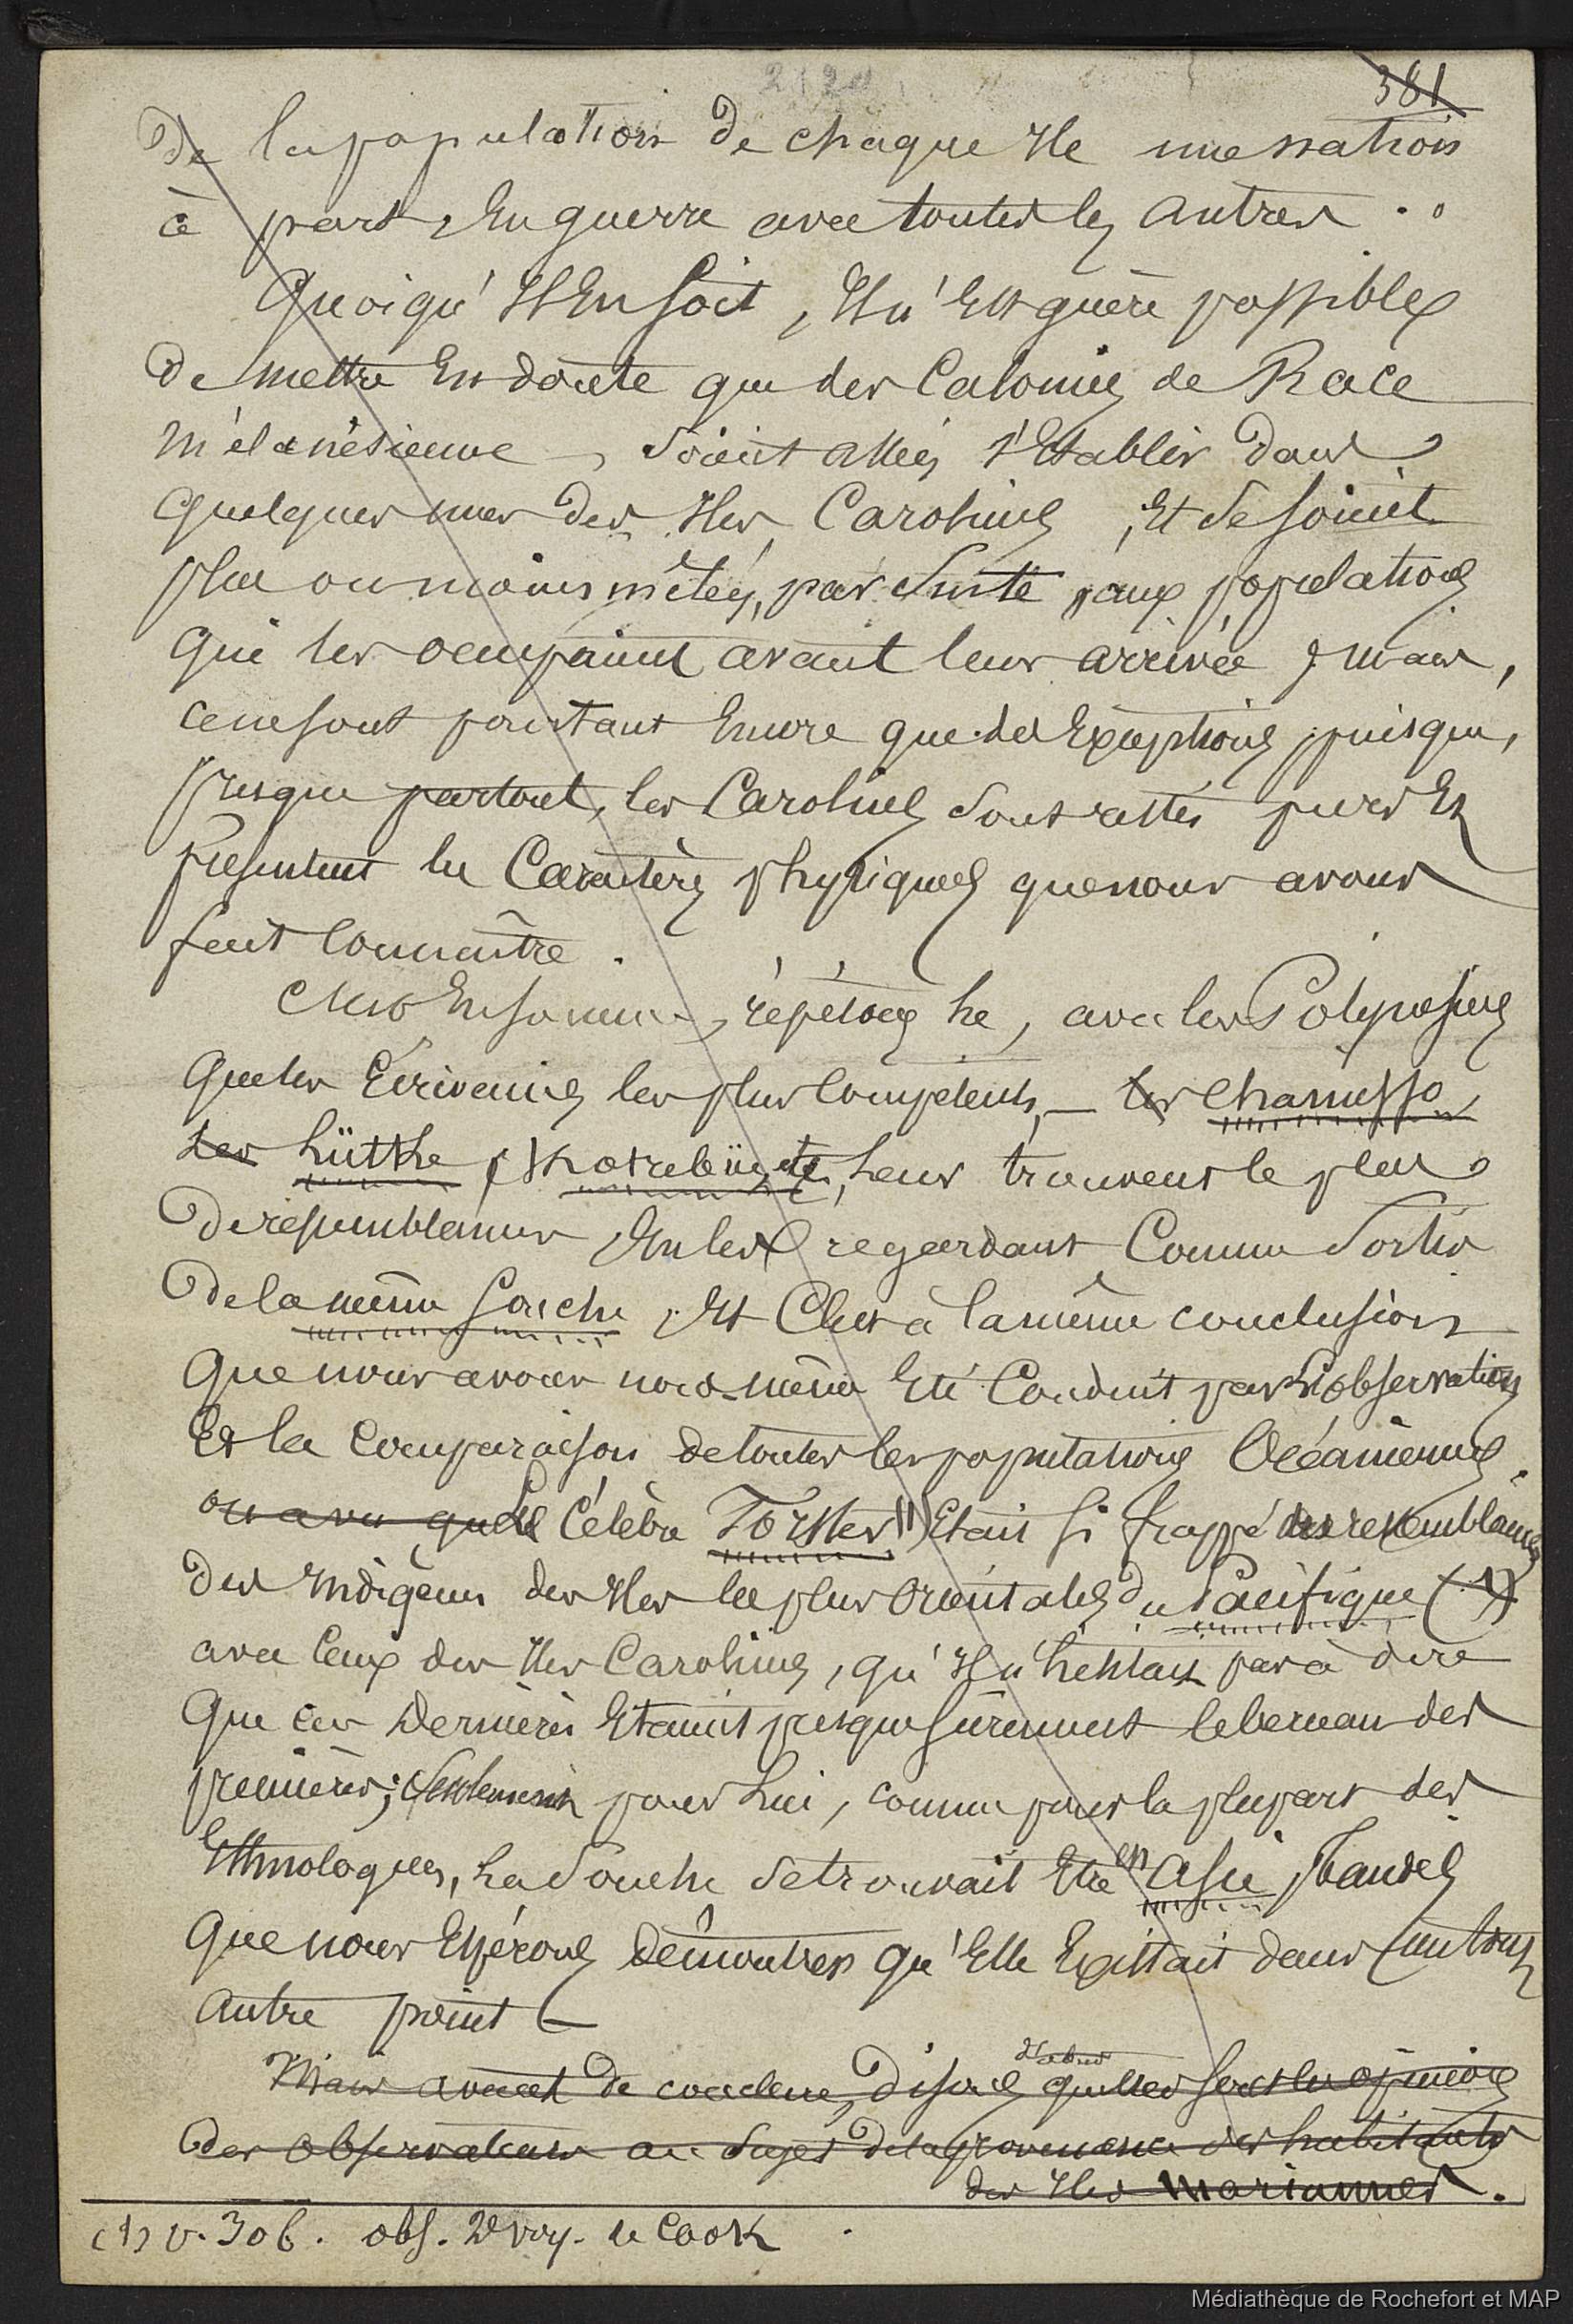 381
De la population de chaque île une nation
à part en guerre avec toutes les autres.
Quoiqu'il en soit, Il n'est guère possible
de mettre en doute que des Colonies de Race
mélanésienne, soient allées s'établir dans
quelques unes des Iles Carolines, et se soient
plus ou moins mêlées, par suite, aux populations
qui les occupaient avant leur arrivée ; mais,
ce ne sont pourtant encore que des Exceptions, puisque,
presque partout, les Carolins sont restés purs et
présentent les Caractères physiques que nous avons
fait connaître.
C'est en somme, répétons le, avec les Polynésiens
que les Écrivains les plus compétents, — les Chamisso,
les Lütke, Kotzebüe, etc, leur trouvent le plus
de ressemblances, en les regardant comme sortis
de la même souche, Et C'est à la même conclusion
que nous avons nous-même été conduit par l'observation
et la comparaison de toutes les populations Océaniennes.
on a vu que le Célèbre Forster (1) Etait si frappé des ressemblances
des indigènes des Iles les plus Orientales du Pacifique (1)
avec ceux des Iles Carolines, qu'il n'hésitait pas à dire
que ces dernières étaient presque sûrement le berceau des
premières ; seulement pour Lui, comme pour la plupart des
Ethnologues, La Souche se trouvait être en Asie, tandis
que nous Espérons démontrer qu'Elle Existait dans un tout
autre point —
Mais avant de conclure, Disons d'abord quelles sont les opinions
des observateurs au sujet de la provenance des habitants
des Iles Mariannes.
(1) v. 306. obs. 2e voy. de Cook
Médiathèque de Rochefort et MAP